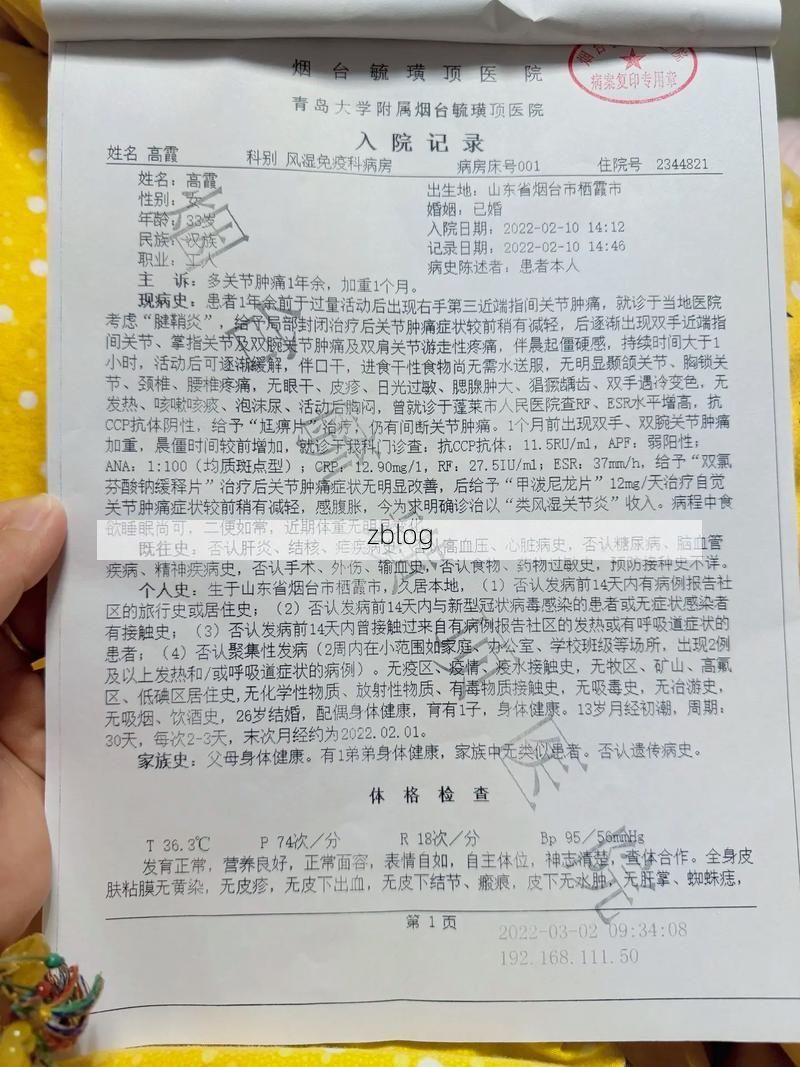 烟台毓璜顶医院
病案复印专用章
青岛大学附属烟台毓璜顶医院
入院记录
姓名 高霞 科别 风湿免疫科病房 病房床号001 住院号 2344821
姓名：高霞 出生地：山东省烟台市栖霞市
性别：女 婚姻：已婚
年龄：33岁 入院日期：2022-02-10 14:12
民族：汉族 记录日期：2022-02-10 14:46
职业：工人 病史陈述者：患者本人
主 诉：多关节肿痛1年余，加重1个月。
现病史：患者1年余前于过量活动后出现右手第三近端指间关节肿痛，就诊于当地医院
考虑“腱鞘炎”，给予局部封闭治疗后关节肿痛症状较前稍有减轻，后逐渐出现双手近端指
间关节、掌指关节及双腕关节肿痛及双肩关节游走性疼痛，伴晨起僵硬感，持续时间大于1
小时，活动后可逐渐缓解，伴口干，进食干性食物尚无需水送服，无明显颞颌关节、胸锁关
节、颈椎、腰椎疼痛，无眼干、皮疹、日光过敏、腮腺肿大、猖獗龋齿、双手遇冷变色，无
发热、咳嗽咳痰、泡沫尿、活动后胸闷，曾就诊于蓬莱市人民医院查RF、ESR水平增高，抗
CCP抗体阴性，给予“尪痹片”治疗，仍有间断关节肿痛。1个月前出现双手、双腕关节肿痛
加重，晨僵时间较前增加，就诊于我科门诊查：抗CCP抗体：11.5RU/ml，APF：弱阳性；
ANA：1:100（均质斑点型）；CRP：12.90mg/l，RF：27.5IU/ml；ESR：37mm/h，给予“双氯
芬酸钠缓释片”治疗后关节肿痛症状无明显改善，后给予“甲泼尼龙片”12mg/天治疗自觉
关节肿痛症状较前稍有减轻，感腹胀，今为求明确诊治以“类风湿关节炎”收入。病程中食
欲睡眠尚可，二便如常，近期体重无明
zblog
既往史：否认肝炎、结核、疟疾病史，高血压、心脏病史，否认糖尿病、脑血管
疾病、精神疾病史，否认手术、外伤、输血史，否认食物、药物过敏史，预防接种史不详。
个人史：生于山东省烟台市栖霞市，久居本地，（1）否认发病前14天内有病例报告社
区的旅行史或居住史；（2）否认发病前14天内与新型冠状病毒感染的患者或无症状感染者
有接触史；（3）否认发病前14天内曾接触过来自有病例报告社区的发热或有呼吸道症状的
患者；（4）否认聚集性发病（2周内在小范围如家庭、办公室、学校班级等场所，出现2例
及以上发热和/或呼吸道症状的病例）。无疫区、疫情、疫水接触史，无牧区、矿山、高氟
区、低碘区居住史，无化学性物质、放射性物质、有毒物质接触史，无吸毒史，无冶游史，
无吸烟、饮酒史，26岁结婚，配偶身体健康，育有1子，身体健康。13岁月经初潮，周期：
30天，每次2-3天，末次月经约为2022.02.01。
家族史：父母身体健康。有1弟弟身体健康，家族中无类似患者。否认遗传病史。
体格检查
T 36.3℃ P 74次/分 R 18次/分 Bp 95/56mmHg
发育正常，营养良好，正常面容，表情自如，自主体位，神志清楚，查体合作。全身皮
肤粘膜无黄染，无皮疹，无皮下出血，无皮下结节、瘢痕，皮下无水肿，无肝掌、蜘蛛痣，
第 1 页
2022-03-02 09:34:08
192.168.111.50